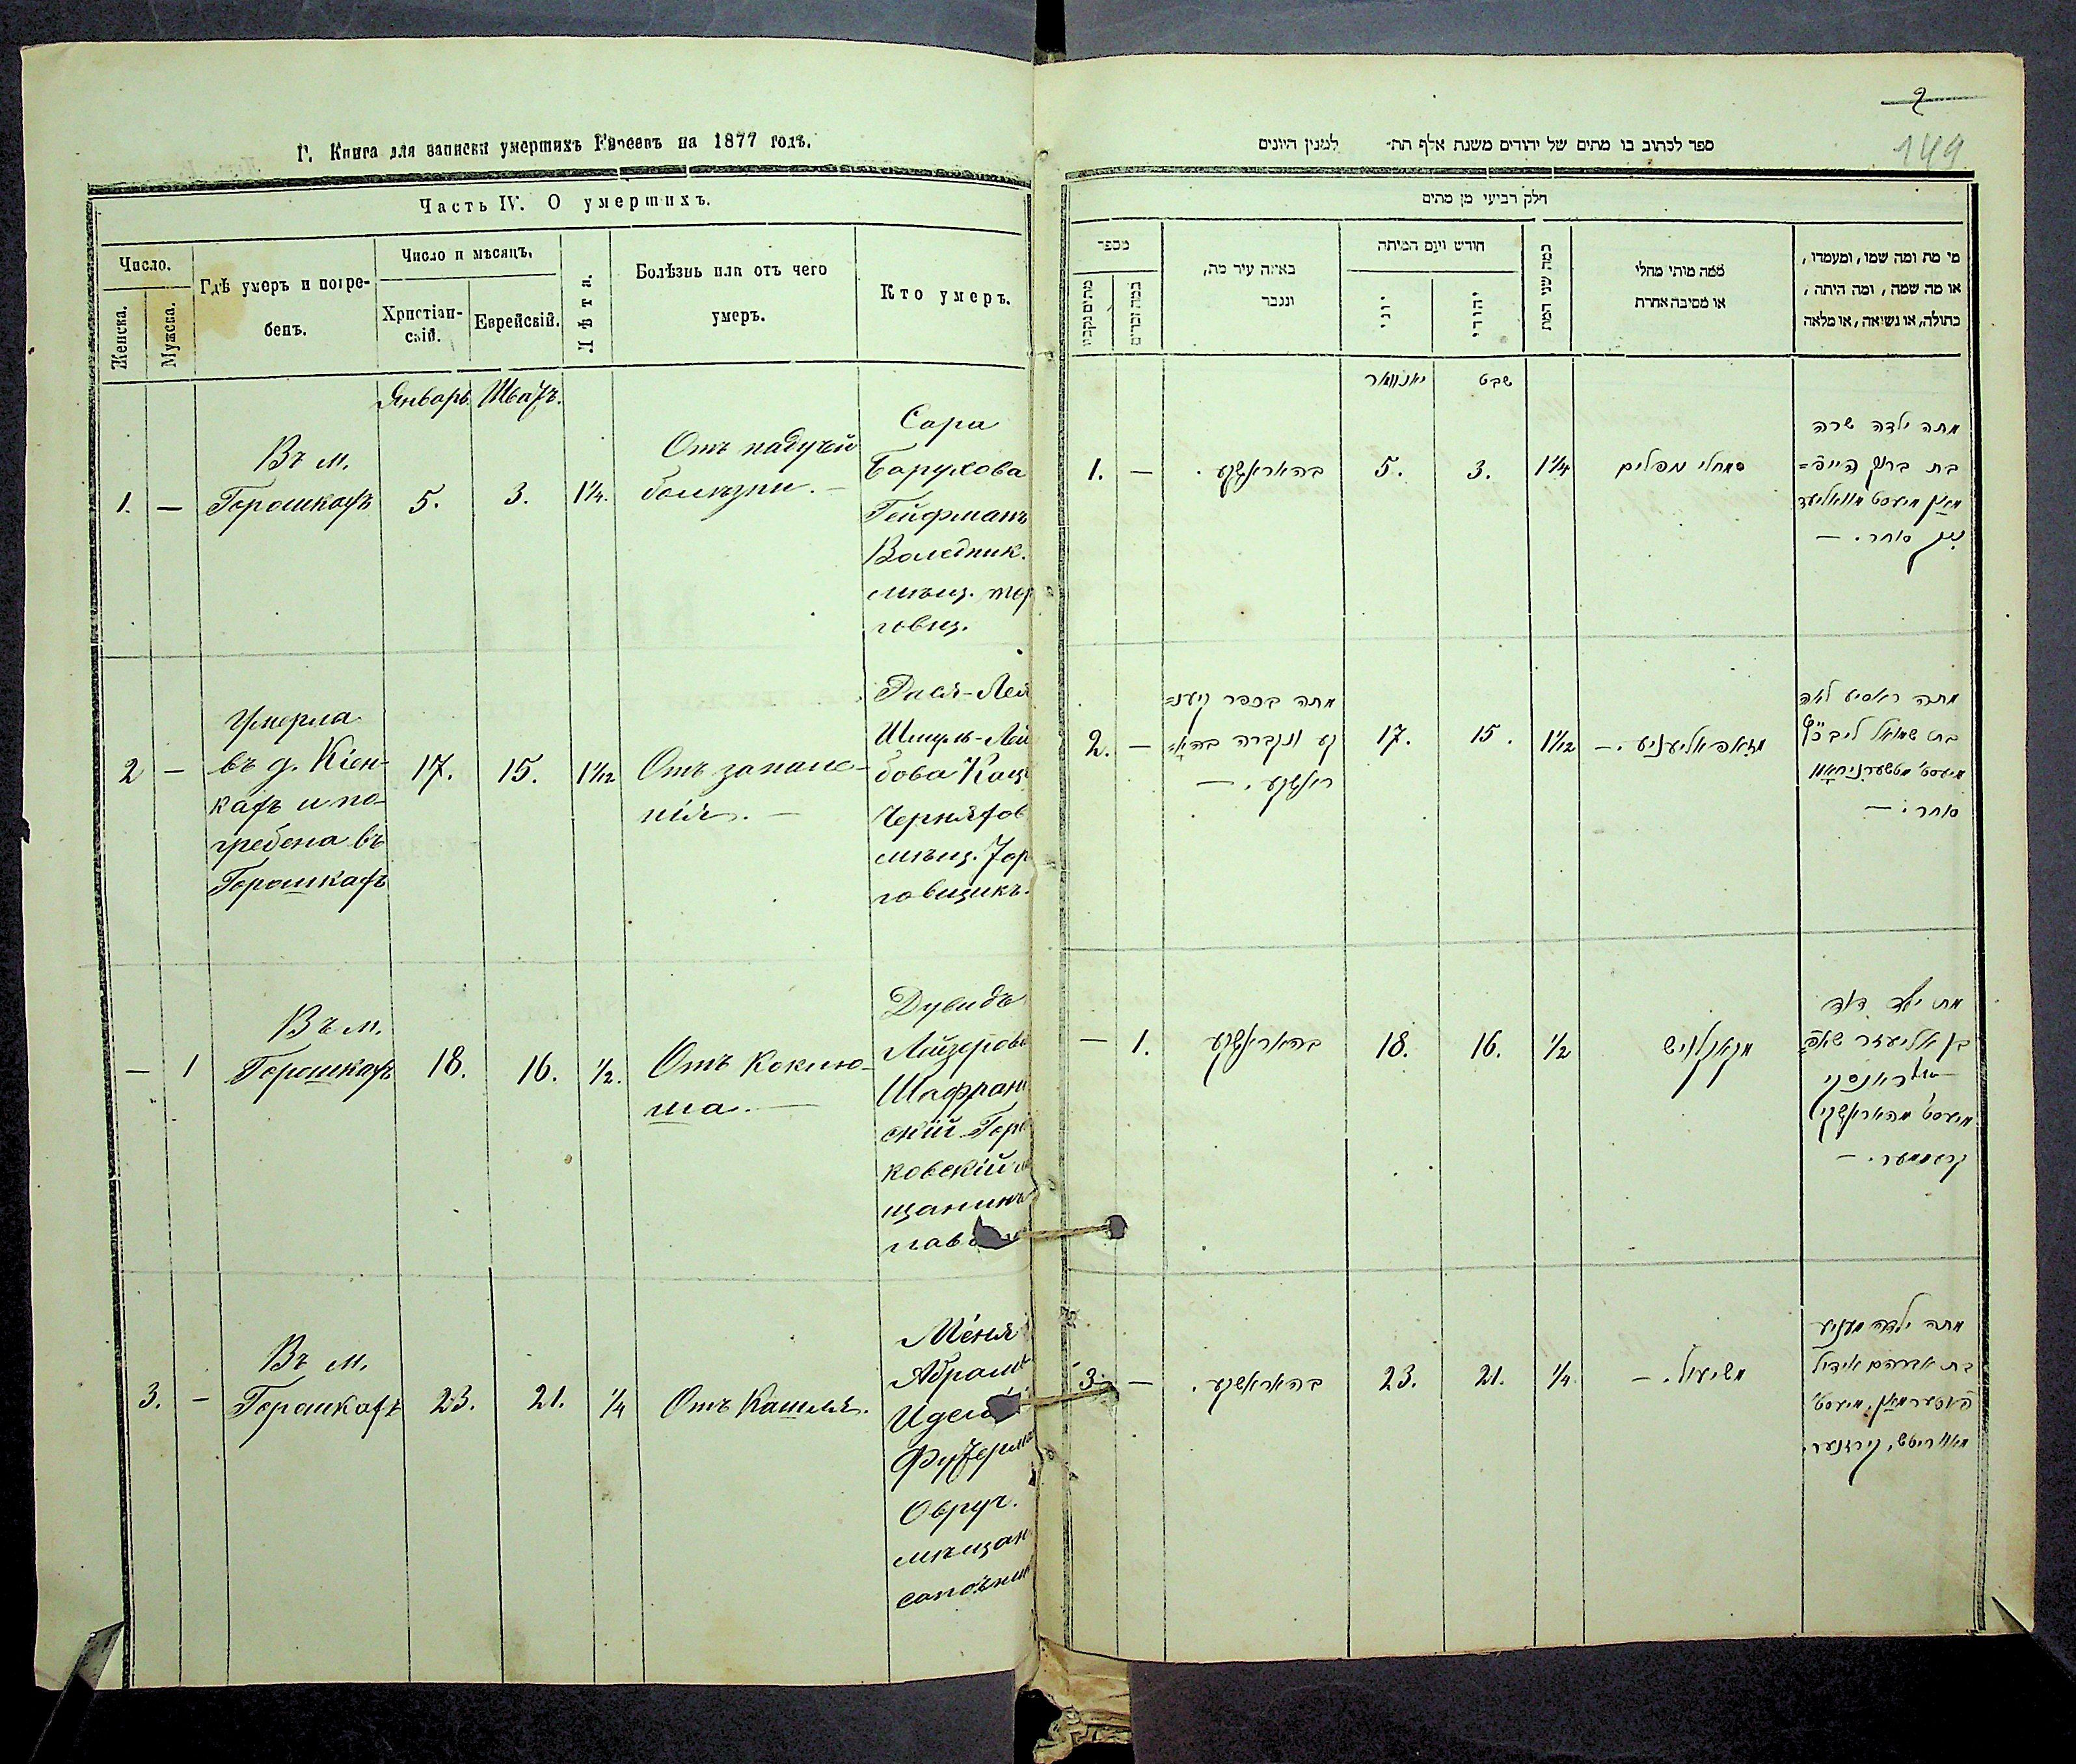 Г. Книга для записки умершихъ Евреевъ на 1877 годъ.
Часть IV. О умершихъ.
Число.
Женска.
Мужска.
Гдѣ умеръ и погре-
бенъ.
Число и мѣсяцъ.
Христіан-
скій.
Еврейскій.
Лѣта.
Болѣзнь или отъ чего
умеръ.
Кто умеръ.
Январь Шватъ.
1. —
Въ м.
Горошкахъ
5. 3. 1¼.
Отъ падучей
болезни. —
Сара
Барухова
Гейфманъ
Воледник.
мѣщ. тор
говщ.
2 —
Умерла
въ д. Кіен-
кахъ и по-
гребена въ
Горошкахъ
17. 15. 1 1/12
Отъ запале-
нія. —
Рася-Лея
Шмуль-Лей
бова Кац
Черняхов
мѣщ. Тор
говщикъ.
— 1
Въ м.
Горошкахъ
18. 16. ½.
Отъ коклю-
ша. —
Дувидъ
Лайзеров
Шафран
скій Горо
ковскій
щанинъ
3. —
Въ м.
Горошкахъ
23. 21. ¼
Отъ Кашля.
Меня
Абрам
Идел
Футерма
Овруч.
мѣщан
сапожни
2
149
ספר לכתוב בו מתים של יהודים משנת אלף תת־ למנין היונים
חלק רביעי מן מתים
מספר
מתים נקבות
כמה זכרים
באיזה עיר מת,
ונגבר
חודש ויום המיתה
יוני
יהודי
כמה שני המת
ממה מיתי מחלי
או מסיבה אחרת
מי מת ומה שמו, ומעמדו,
או מה שמה, ומה היתה,
בתולה, או נשואה, או מלאה
יאנוואר שבט
1. —
בהאראשקע.
5. 3. 1¼
מחלי נופלים
מתה ילדה שרה
בת ברוך הייפ=
מאן מיעסט מוואליעד
סוחר. —
2. —
מתה בכפר קיענ=
קע ונקברה בהא=
ראשקע. —
17. 15. 1 1/12
מזאפאליעניע. —
מתה ראסיע לאה
בת שמואל ליב כ״ץ
סוחר. —
— 1.
בהאראשקע
18. 16. ½
מקאקליוש
מת ילד דוד
בן אליעזר שאפ=
ראנסקי
מיעסט מהאראשקי
קרעמער. —
3. —
בהאראשקע.
23. 21. ¼
משיעול. —
מתה ילדה מעניע
בת אברהם אידיל
פוטערמאן, מיעסט